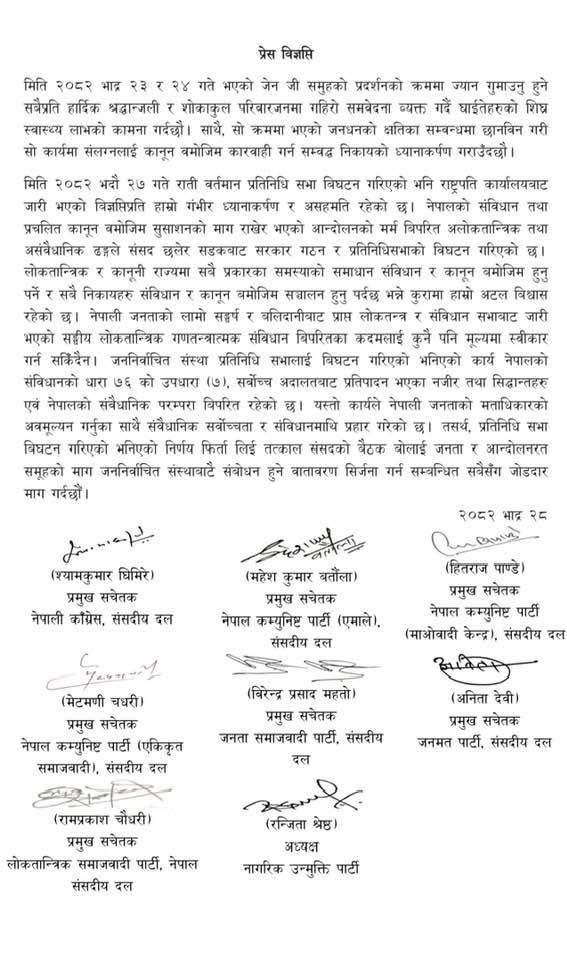 प्रेस विज्ञप्ति
मिति २०८२ भाद्र २३ र २४ गते भएको जेन जी समुहको प्रदर्शनको क्रममा ज्यान गुमाउनु हुने
सबैप्रति हार्दिक श्रद्धान्जली र शोकाकुल परिवारजनमा गहिरो समवेदना व्यक्त गर्दै घाईतेहरुको शिघ्र
स्वास्थ्य लाभको कामना गर्दछौ। साथै, सो क्रममा भएको जनधनको क्षतिका सम्वन्धमा छानविन गरी
सो कार्यमा संलग्नलाई कानून वमोजिम कारवाही गर्न सम्वद्ध निकायको ध्यानाकर्षण गराउँदछौ।
मिति २०८२ भदौ २७ गते राती वर्तमान प्रतिनिधि सभा बिघटन गरिएको भनि राष्ट्रपति कार्यालयबाट
जारी भएको विज्ञप्तिप्रति हाम्रो गंभीर ध्यानाकर्षण र असहमति रहेको छ। नेपालको संविधान तथा
प्रचलित कानून वमोजिम सुसाशनको माग राखेर भएको आन्दोलनको मर्म बिपरित अलोकतान्त्रिक तथा
असंवैधानिक ढङ्गले संसद छलेर सडकबाट सरकार गठन र प्रतिनिधिसभाको विघटन गरिएको छ।
लोकतान्त्रिक र कानूनी राज्यमा सबै प्रकारका समस्याको समाधान संविधान र कानून बमोजिम हुनु
पर्ने र सबै निकायहरु संविधान र कानून बमोजिम सञ्चालन हुनु पर्दछ भन्ने कुरामा हाम्रो अटल बिश्वास
रहेको छ। नेपाली जनताको लामो सङ्घर्ष र बलिदानीबाट प्राप्त लोकतन्त्र र संविधान सभाबाट जारी
भएको सङ्घीय लोकतान्त्रिक गणतन्त्रात्मक संविधान बिपरितका कदमलाई कुनै पनि मूल्यमा स्वीकार
गर्न सकिँदैन। जननिर्वाचित संस्था प्रतिनिधि सभालाई बिघटन गरिएको भनिएको कार्य नेपालको
संविधानको धारा ७६ को उपधारा (७), सर्वोच्च अदालतबाट प्रतिपादन भएका नजीर तथा सिद्धान्तहरु
एवं नेपालको संवैधानिक परम्परा बिपरित रहेको छ। यस्तो कार्यले नेपाली जनताको मताधिकारको
अवमूल्यन गर्नुका साथै संवैधानिक सर्वोच्चता र संविधानमाथि प्रहार गरेको छ। तसर्थ, प्रतिनिधि सभा
बिघटन गरिएको भनिएको निर्णय फिर्ता लिई तत्काल संसदको बैठक बोलाई जनता र आन्दोलनरत
समूहको माग जननिर्वाचित संस्थाबाटै संबोधन हुने वातावरण सिर्जना गर्न सम्बन्धित सबैसँग जोडदार
माग गर्दछौं।
२०८२ भाद्र २८
(श्यामकुमार घिमिरे)
प्रमुख सचेतक
नेपाली काँग्रेस, संसदीय दल
(महेश कुमार बर्तौला)
प्रमुख सचेतक
नेपाल कम्युनिष्ट पार्टी (एमाले),
संसदीय दल
(हितराज पाण्डे)
प्रमुख सचेतक
नेपाल कम्युनिष्ट पार्टी
(माओवादी केन्द्र), संसदीय दल
(मेटमणी चधरी)
प्रमुख सचेतक
नेपाल कम्युनिष्ट पार्टी (एकिकृत
समाजवादी), संसदीय दल
(बिरेन्द्र प्रसाद महतो)
प्रमुख सचेतक
जनता समाजवादी पार्टी, संसदीय
दल
(अनिता देवी)
प्रमुख सचेतक
जनमत पार्टी, संसदीय दल
(रामप्रकाश चौधरी)
प्रमुख सचेतक
लोकतान्त्रिक समाजवादी पार्टी, नेपाल
संसदीय दल
(रन्जिता श्रेष्ठ)
अध्यक्ष
नागरिक उन्मुक्ति पार्टी